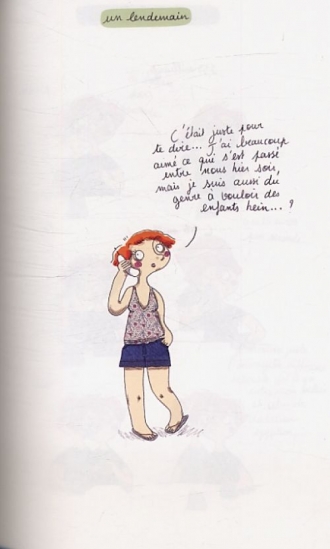 un lendemain
C'était juste pour
te dire... J'ai beaucoup
aimé ce qui s'est passé
entre nous hier soir,
mais je suis aussi du
genre à vouloir des
enfants hein... ?